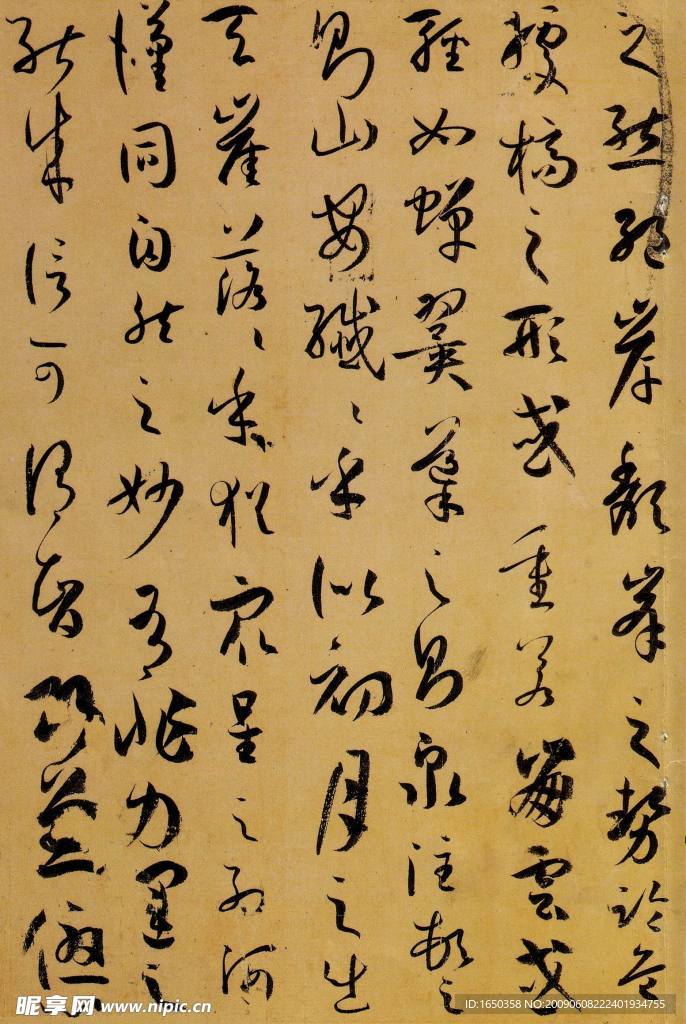 之態絕岸頹峯之勢臨危
據槁之形或重若崩雲或
輕如蟬翼導之則泉注頓之
則山安纖〻乎似初月之出
天崖落〻乎猶眾星之列河
漢同自然之妙有非力運之
能成信可謂智巧兼優
昵享网 www.nipic.cn
ID:1650358 NO:20090608222401934755